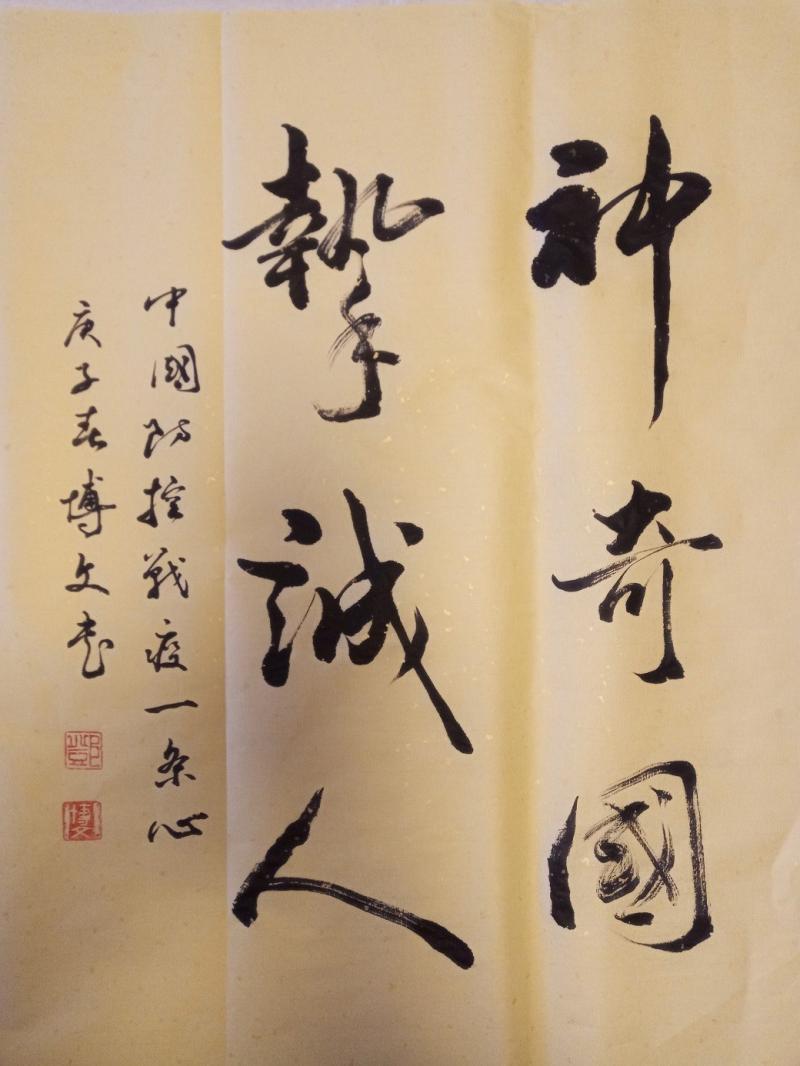 神奇國
摯誠人
中國防控戰疫一条心
庚子春博文书
博文